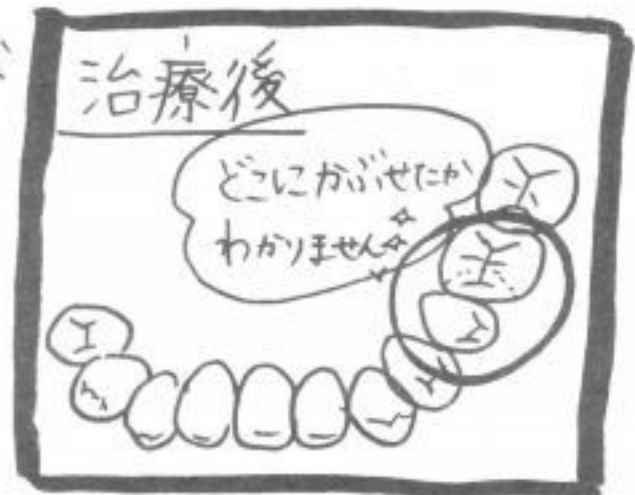 治療後
どこにかぶせたか
わかりません